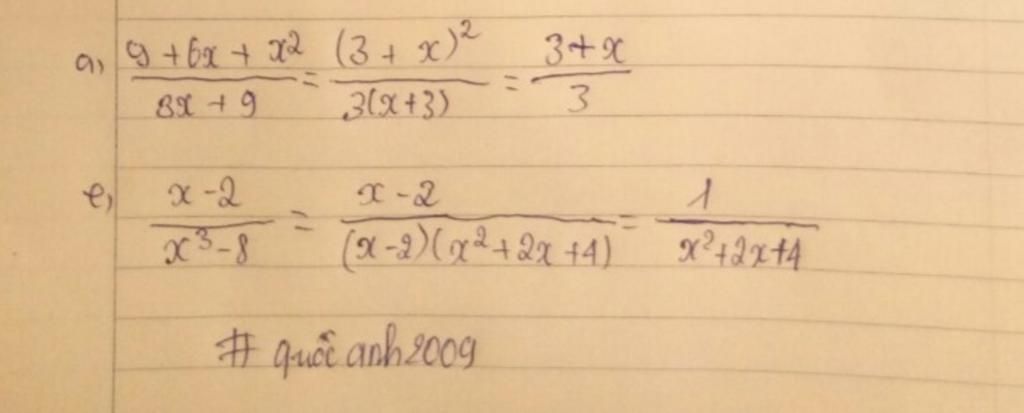 a, (9 + 6x + x²)/(3x + 9) = (3 + x)²/(3(x+3)) = (3+x)/3
e, (x - 2)/(x³ - 8) = (x - 2)/((x-2)(x²+2x+4)) = 1/(x²+2x+4)
# quốc anh2009